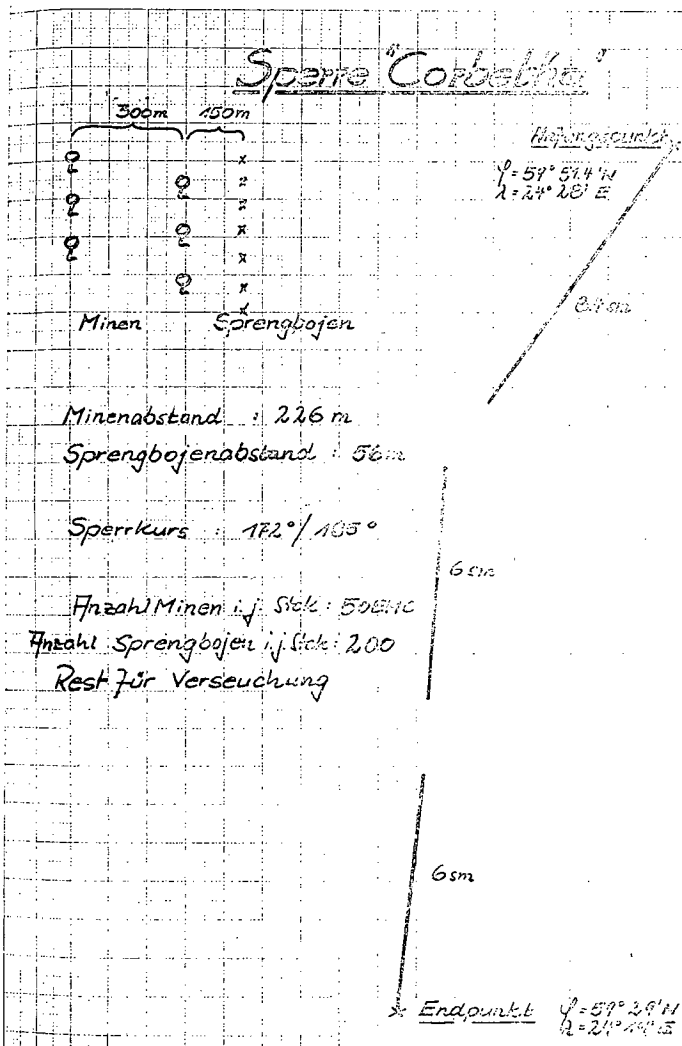 Sperre "Corbetha"
300m 150m
Anfangspunkt
φ = 59° 51.4' N
λ = 24° 28' E
8.4 sm
Minen Sprengbojen
Minenabstand : 226 m
Sprengbojenabstand : 56m
Sperrkurs : 172°/185°
6 sm
Anzahl Minen i.j. Stck : 50 EMC
Anzahl Sprengbojen i.j. Stck : 200
Rest für Verseuchung
6 sm
Endpunkt φ = 59° 29' N
λ = 24° 14' E